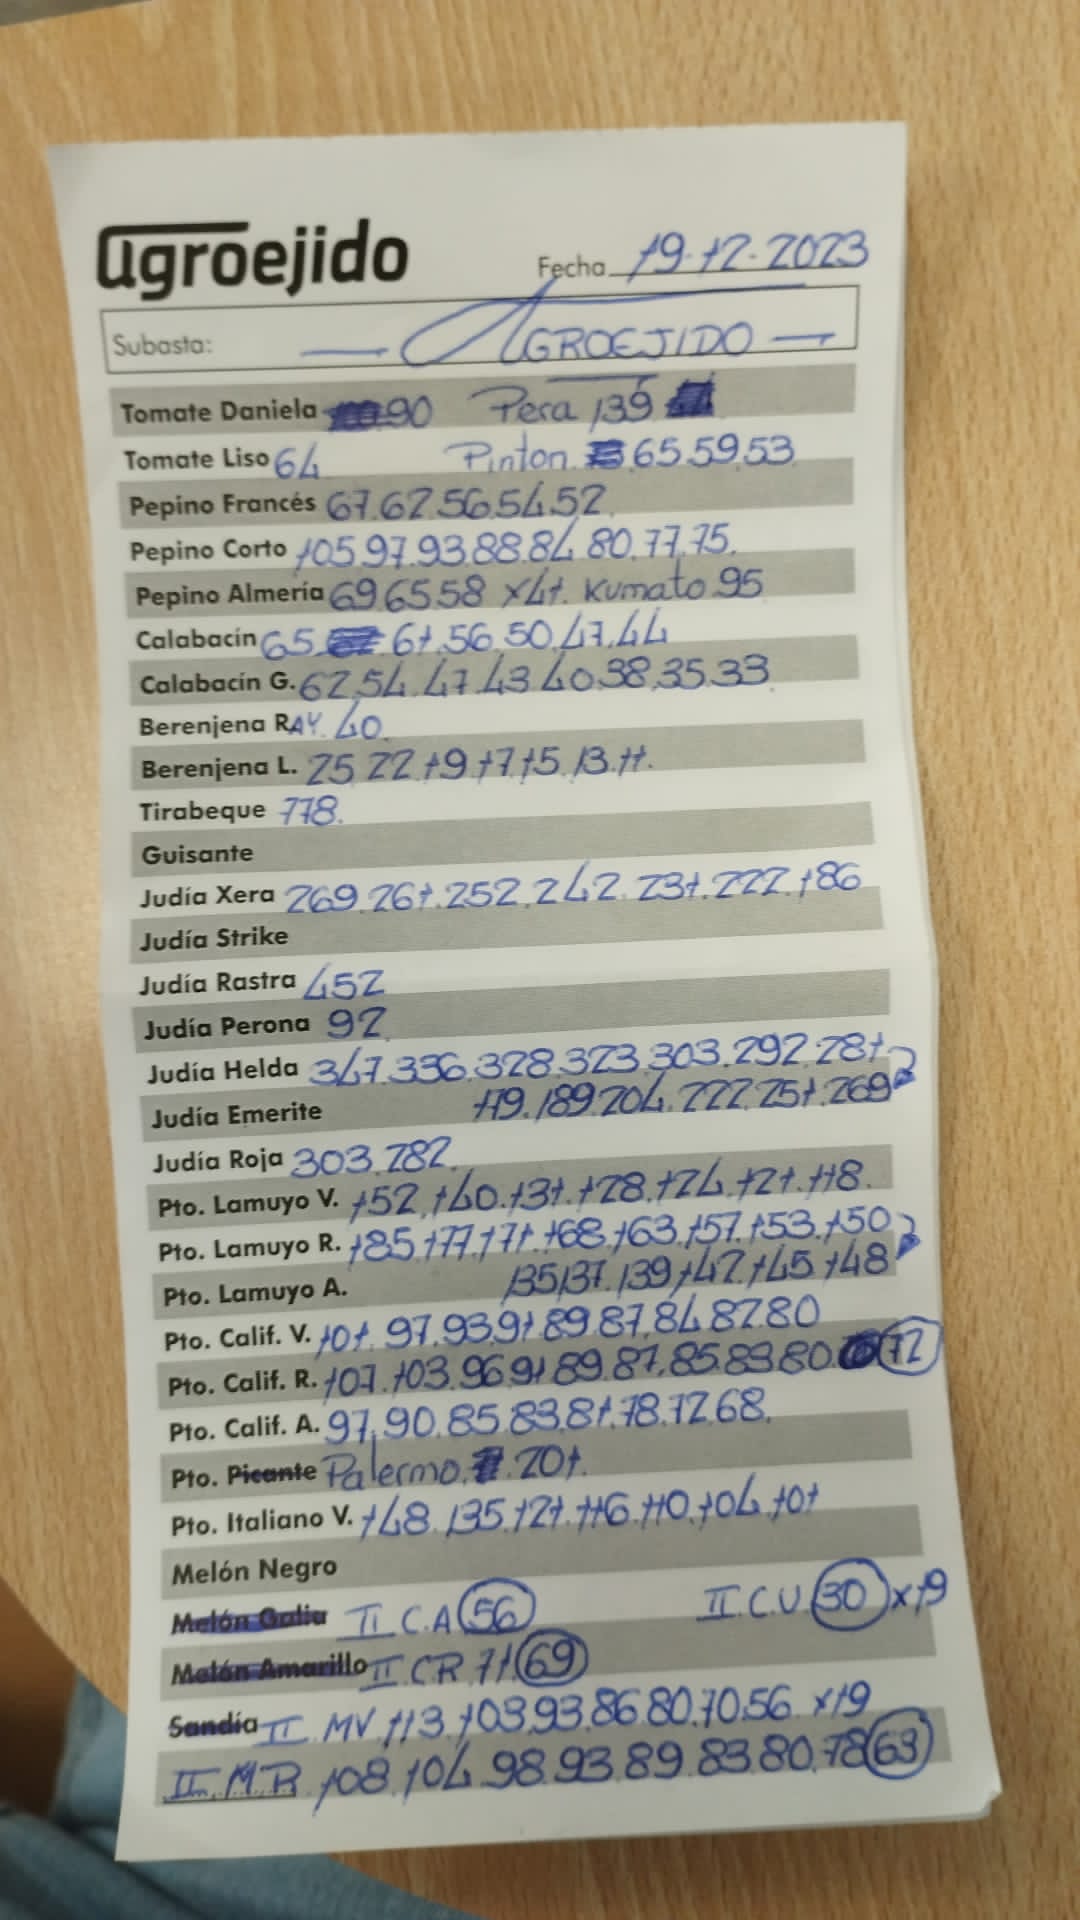 agroejido
Fecha 19-12-2023
Subasta: AGROEJIDO
Tomate Daniela 90 Pera 139
Tomate Liso 64 Pinton. 65.59.53
Pepino Francés 67.62.56.54.52.
Pepino Corto 105.97.93.88.84.80.77.75.
Pepino Almería 69.65.58 x41. Kumato.95
Calabacín 65. 61.56.50.47.44
Calabacín G. 62.54.47.43.40.38.35.33
Berenjena RAY. 40.
Berenjena L. 25.22.19.17.15.13.11.
Tirabeque 778.
Guisante
Judía Xera 269.261.252.242.231.222.186
Judía Strike
Judía Rastra 452
Judía Perona 92
Judía Helda 347.336.328.323.303.292.281
Judía Emerite 119.189.204.222.251.269
Judía Roja 303.282.
Pto. Lamuyo V. 152.140.131.128.124.121.118.
Pto. Lamuyo R. 185.177.171.168.163.157.153.150
Pto. Lamuyo A. 135.137.139.142.145.148
Pto. Calif. V. 101.97.93.91.89.87.84.82.80
Pto. Calif. R. 107.103.96.91.89.87.85.83.80. 72
Pto. Calif. A. 97.90.85.83.81.78.72.68.
Pto. Picante Palermo. 201.
Pto. Italiano V. 148.135.121.116.110.104.101
Melón Negro
Melón Galia II C.A 56 II.C.V. 30 x19
Melón Amarillo II CR 71 69
Sandía II. MV. 113.103.93.86.80.70.56. x19
II.M.R. 108.104.98.93.89.83.80.78 63